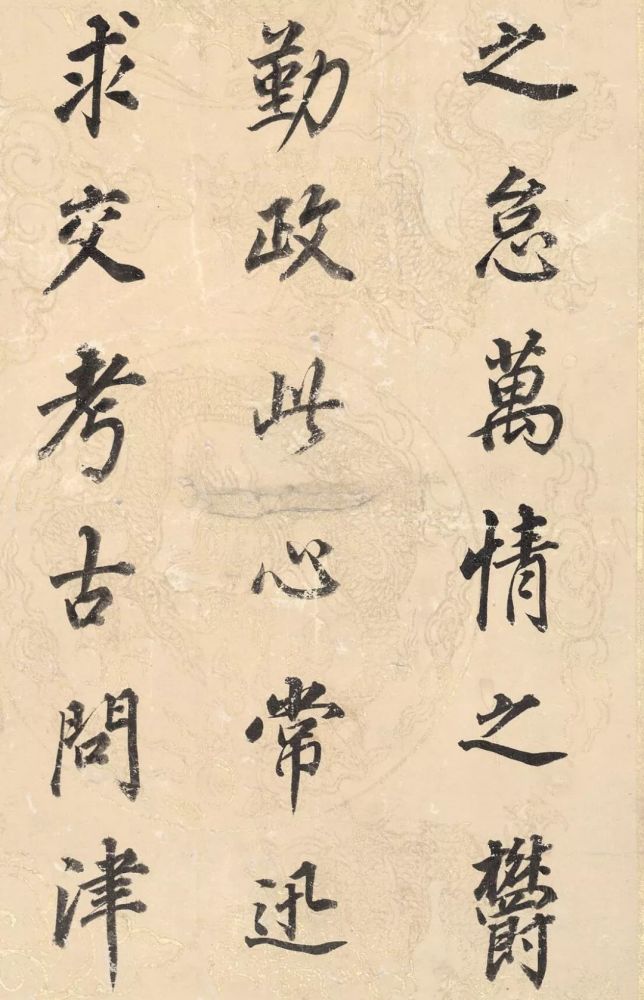 之怠萬情之欝
勤政此心常迅
求交考古問津